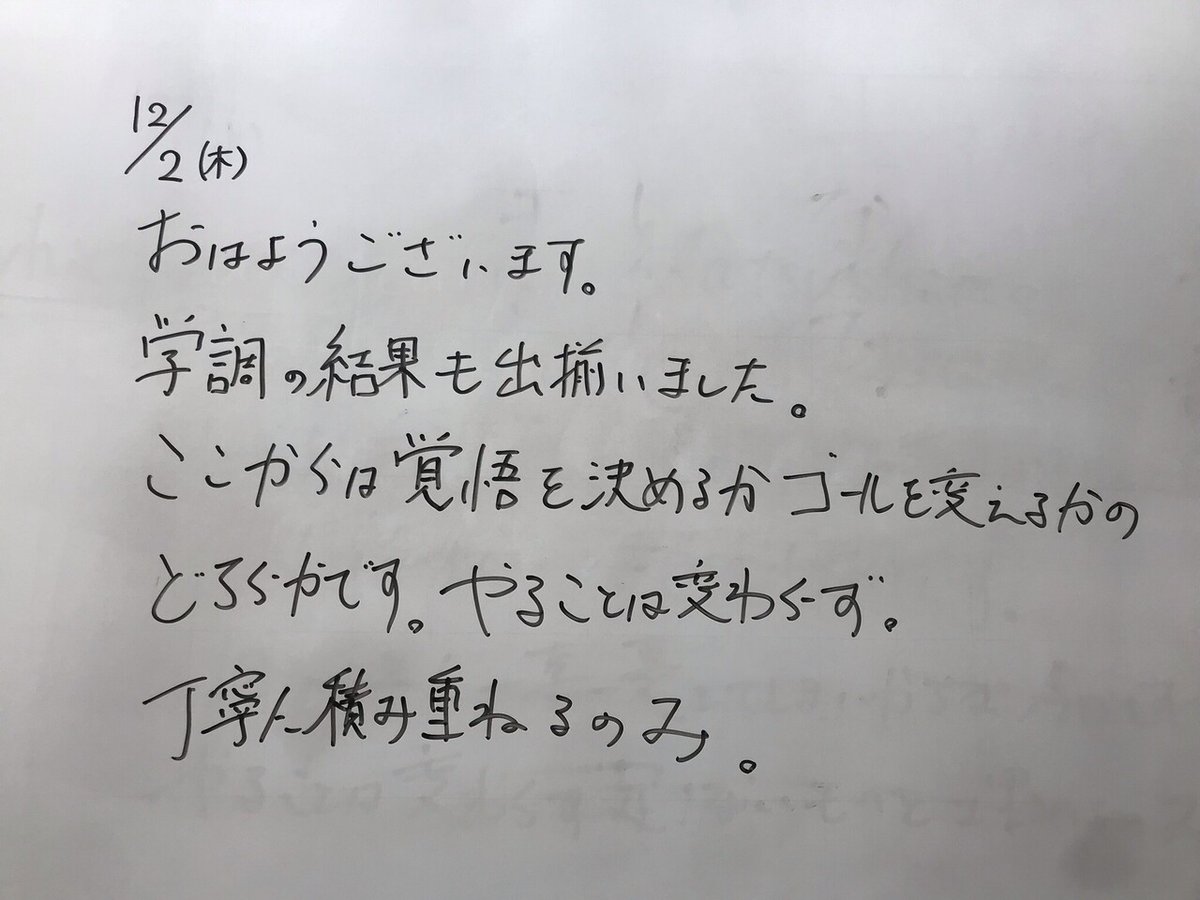 12/2(木)
おはようございます。
学調の結果も出揃いました。
ここからは覚悟を決めるかゴールを変えるかの
どちらかです。やることは変わらず。
丁寧に積み重ねるのみ。